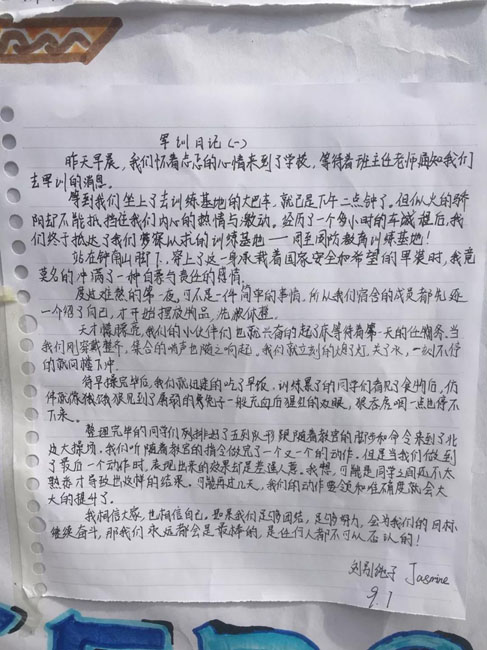 军训日记(一)
昨天早晨,我们怀着忐忑的心情来到了学校,等待着班主任老师通知我们
去军训的消息。
等到我们坐上了去训练基地的大巴车,就已是下午二点钟了。但似火的骄
阳却不能抵挡住我们内心的热情与激动。经历了一个多小时的车减程后,我
们终于抵达了我们梦寐以求的训练基地——国防教育训练基地!
站在钟南山脚下,穿上了这一身承载着国家安全和希望的军装时,我竟
莫名的冲满了一种自豪与责任的感情。
度过难熬的第一夜,可不是一件简单的事情,所以我们宿舍的成员都先逐
一介绍了自己,才开始摆放物品,洗漱休整。
天才朦朦亮,我们的小伙伴们也就兴奋的起了床等待着第一天的任务。当
我们刚穿戴整齐,集合的哨声也随之响起,我们就立刻的关了灯,关了水,一刻不停
的就向楼下冲。
待早操完毕后,我们就迅速的吃了早饭,训练累了的同学们看见了食物后,仿
佛就像饿狼见到了羸弱的兔子一般充血后猩红的双眼,狼吞虎咽一点也停不
下来。
整理完毕的同学们列排出了五列队形跟随着教官的脚步和命令来到了北
边大操场。我们听随着教官的指令做完了一个又一个的动作。但是当我们做到
了最后一个动作时,展现出来的效果却是差强人意。我想,可能是同学之间还不太
熟悉才导致出这样的结果。可能再过几天,我们的动作要领和准确度就会大
大的提升了。
我相信大家,也相信自己,如果我们足够团结,足够努力,会为我们的目标
继续奋斗,那我们永远都会是最棒的,是任何人都不可以否认的!
Jasmine
9.1